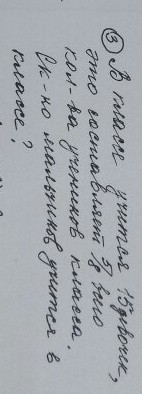 ③ В классе учится 15 девочек,
это составляет 5/8 всего
кол-ва учеников класса.
Ск-но мальчиков учится в
классе?